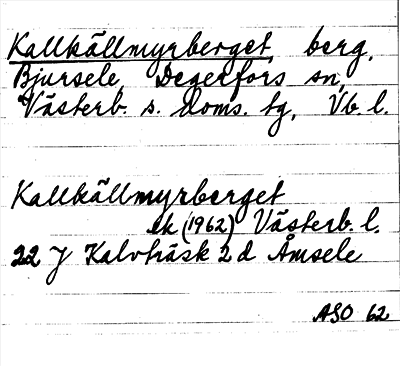 Kallkällmyrberget, berg,
Bjursele, Degerfors sn,
Västerb. s. doms. tg, Vb. l.
Kallkällmyrberget
ek (1962) Västerb. l.
22 J Kalvträsk 2 d Åmsele
ASO 62